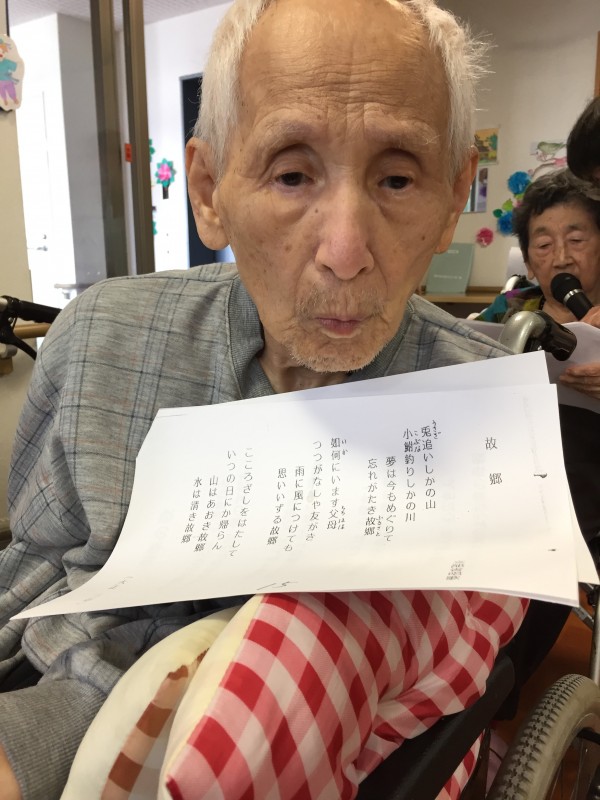 故郷
兎追いしかの山
小鮒釣りしかの川
夢は今もめぐりて
忘れがたき故郷
如何にいます父母
つつがなしや友がき
雨に風につけても
思いいずる故郷
こころざしをはたして
いつの日にか帰らん
山はあおき故郷
水は清き故郷